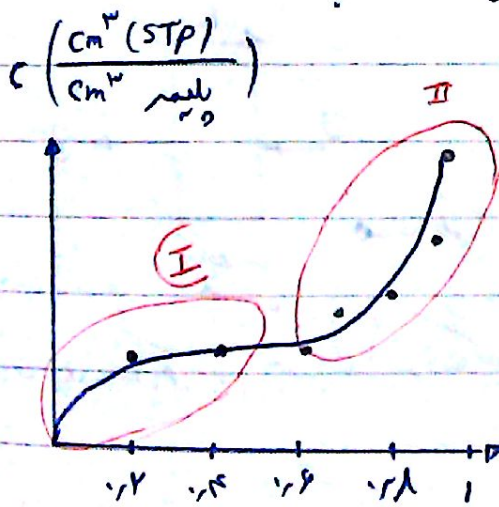 C ( cm³ (STP)
cm³ پلیمر )
II
I
۰٫۲ ۰٫۴ ۰٫۶ ۰٫۸ ۱